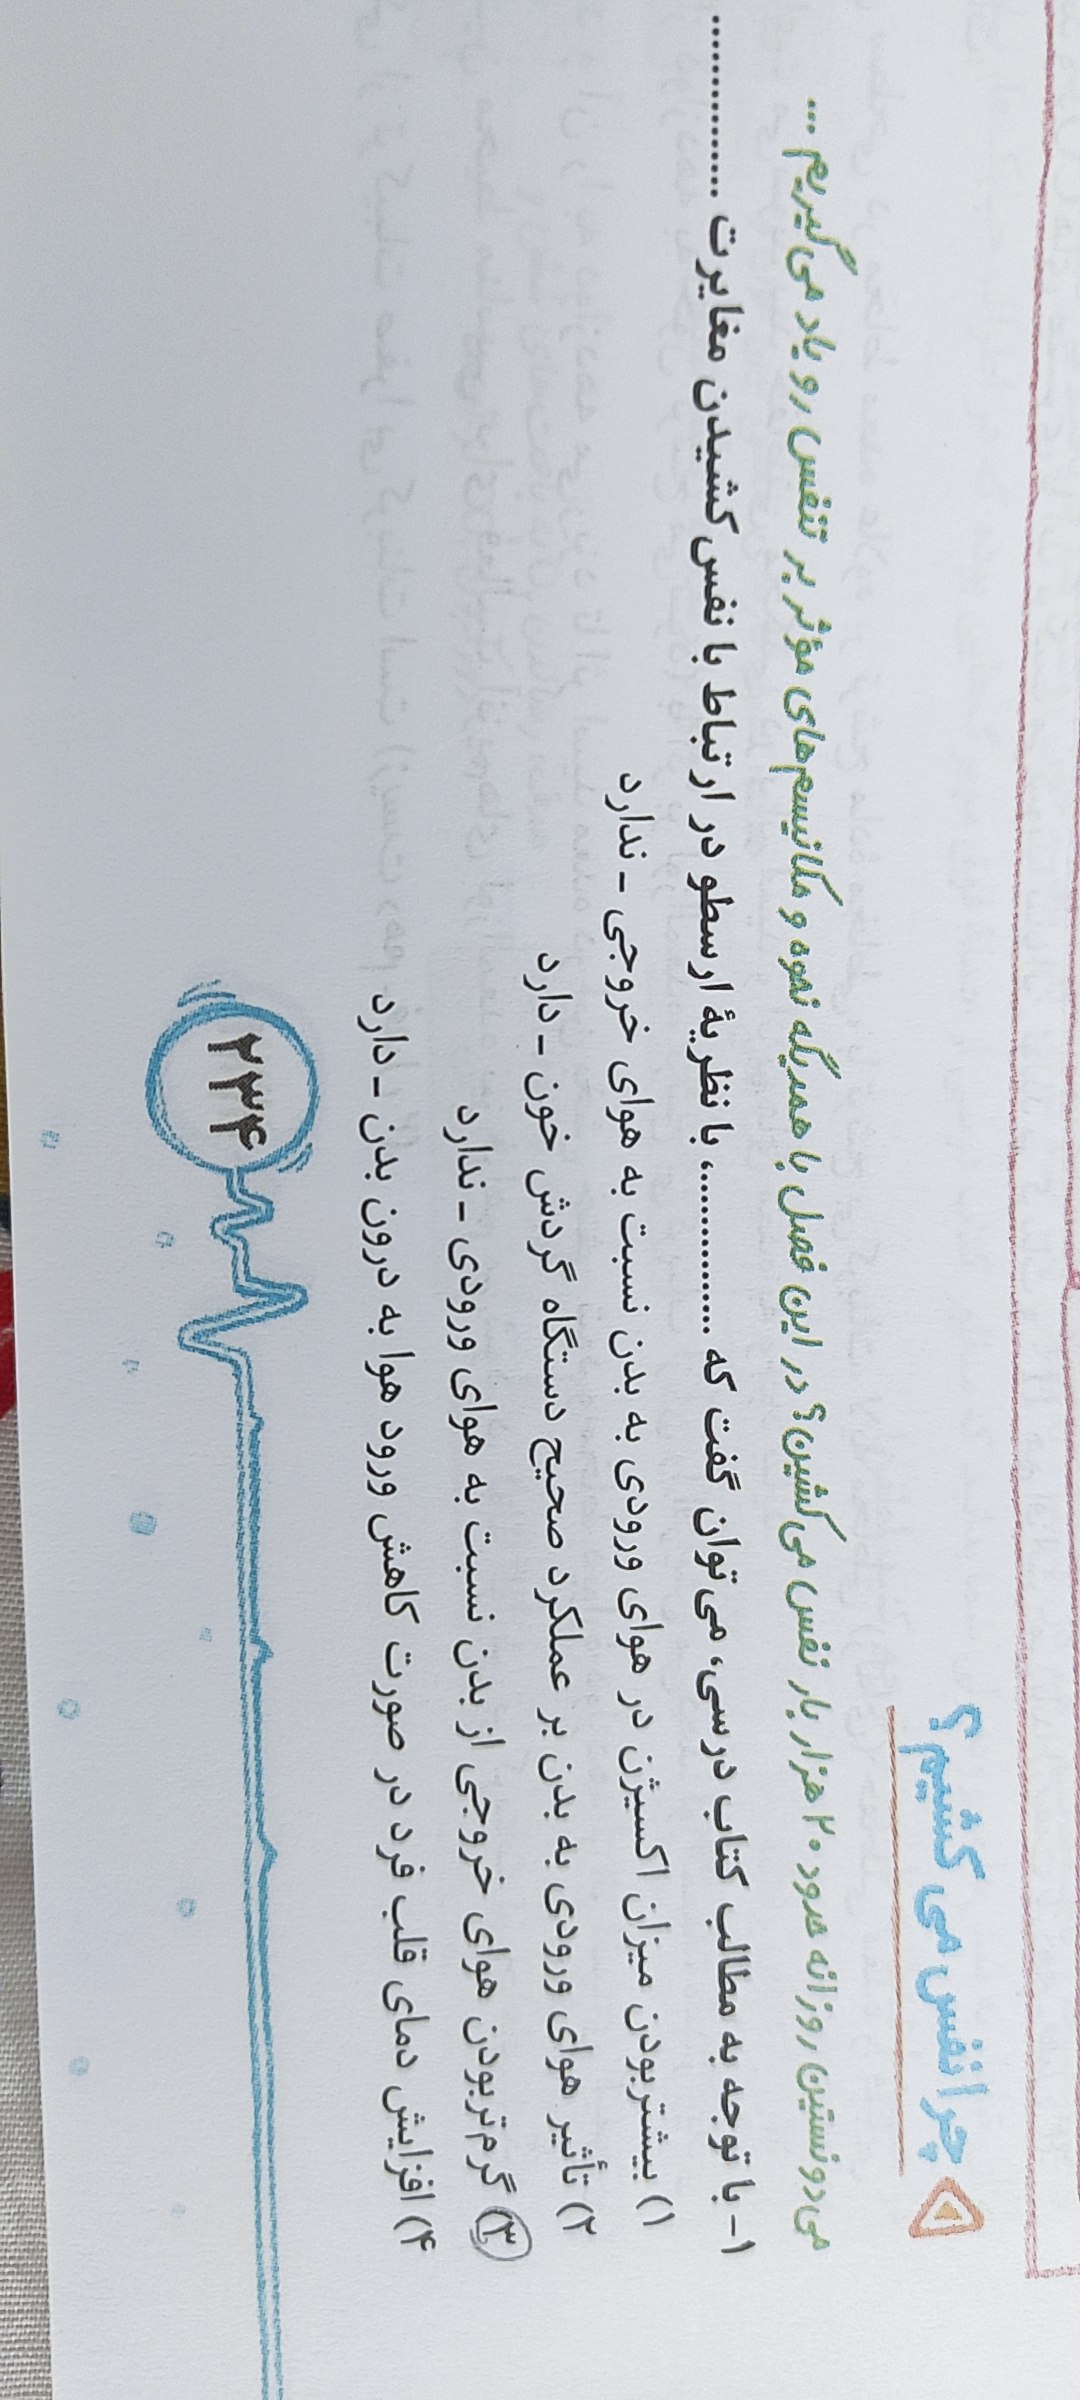 چرا نفس می‌کشیم؟
می‌دونستین روزانه حدود ۲۰ هزار بار نفس می‌کشین؟ در این فصل با همدیگه نحوه و مکانیسم‌های مؤثر بر تنفس رو یاد می‌گیریم ...
۱- با توجه به مطالب کتاب درسی، می‌توان گفت که ..............، با نظریهٔ ارسطو در ارتباط با نفس کشیدن مغایرت ..............
۱) بیشتربودن میزان اکسیژن در هوای ورودی به بدن نسبت به هوای خروجی - ندارد
۲) تأثیر هوای ورودی به بدن بر عملکرد صحیح دستگاه گردش خون - دارد
۳) گرم‌تربودن هوای خروجی از بدن نسبت به هوای ورودی - ندارد
۴) افزایش دمای قلب فرد در صورت کاهش ورود هوا به درون بدن - دارد
۲۳۴